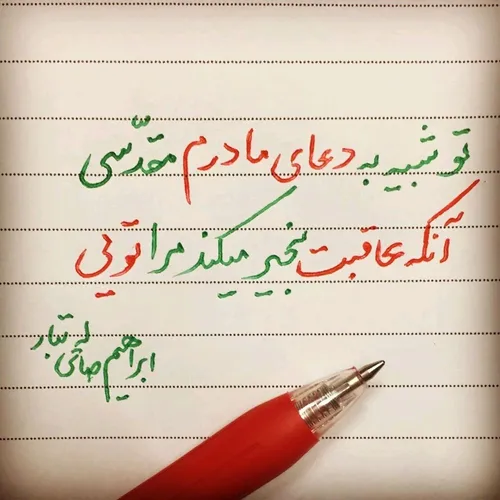 تو شبیه به دعای مادرم مقدّسی
آنکه عاقبت بخیر میکند مرا تویی
ابراهیم صالحی تبار